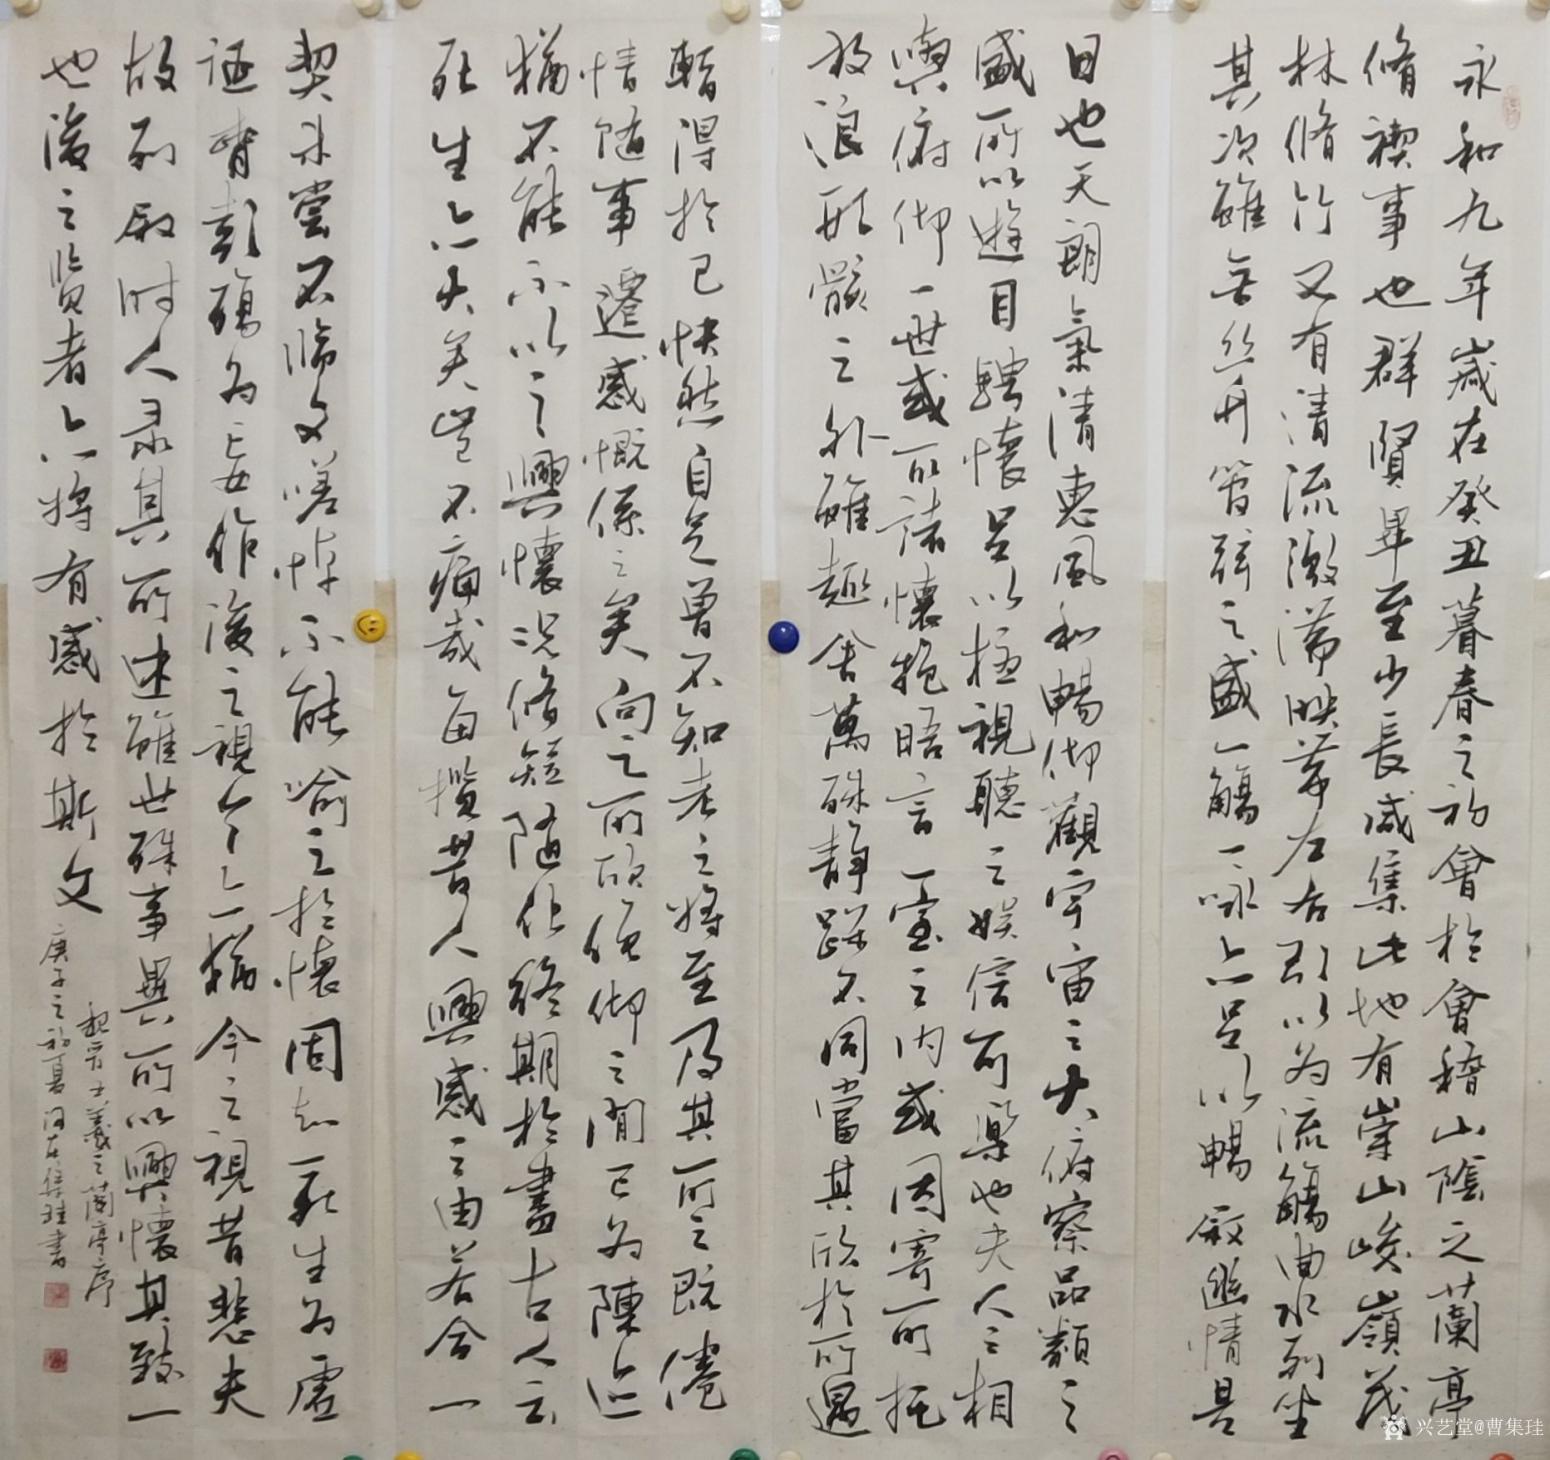 永和九年歲在癸丑暮春之初會於會稽山陰之蘭亭
脩禊事也群賢畢至少長咸集此地有崇山峻嶺茂
林脩竹又有清流激湍映帶左右引以為流觴曲水列坐
其次雖无丝竹管弦之盛一觴一咏亦足以暢敘幽情是
日也天朗氣清惠風和暢仰觀宇宙之大俯察品類之
盛所以遊目騁懷足以極視聽之娱信可樂也夫人之相
與俯仰一世或取諸懷抱晤言一室之內或因寄所托
放浪形骸之外雖趣舍萬殊静躁不同當其欣於所遇
暫得於己快然自足曾不知老之將至及其所之既倦
情随事遷感慨係之矣向之所欣俛仰之閒已为陳迹
猶不能不以之興懷况脩短随化終期於盡古人云
死生亦大矣豈不痛哉每攬昔人興感之由若合一
契未嘗不臨文嗟悼不能喻之於懷固知一死生为虛
誕齊彭殤为妄作後之視今亦猶今之視昔悲夫
故列敘時人录其所述雖世殊事異所以興懷其致一
也後之贤者亦將有感於斯文
魏晋王羲之蘭亭序
庚子之初夏河东集珪書
兴艺堂@曹集珪